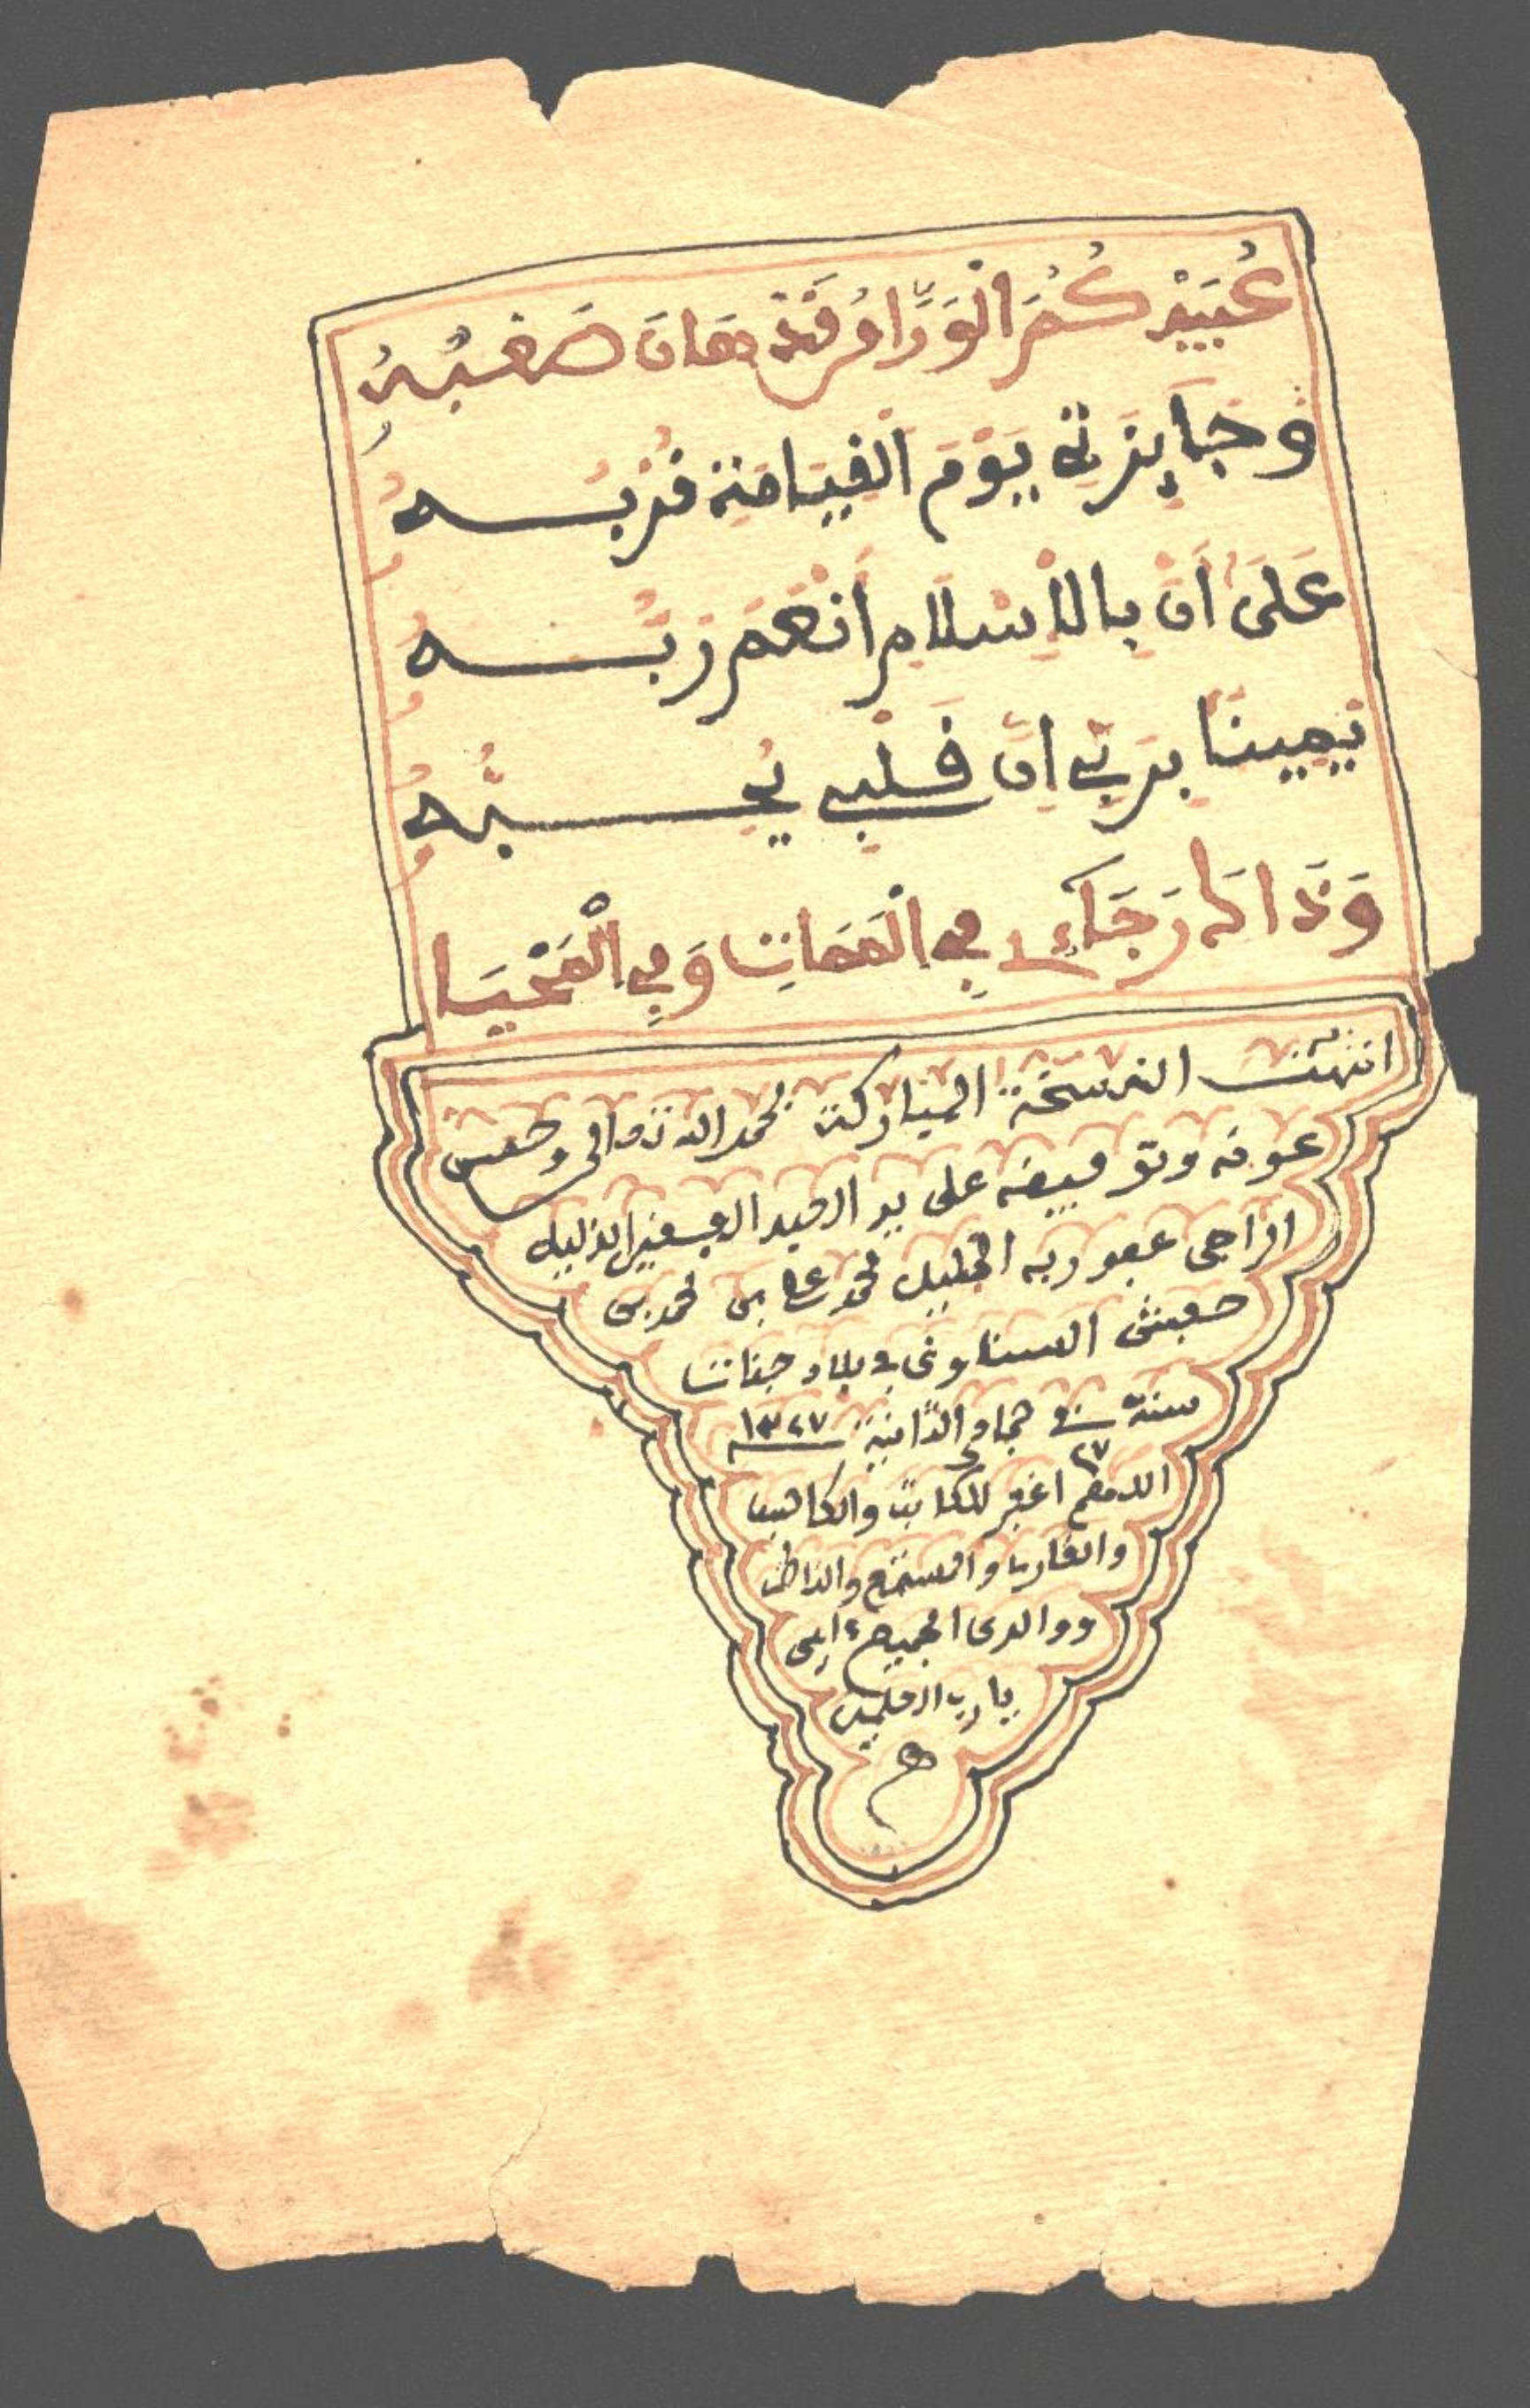 عُبَيْدُكُمُ الْوَرَّاقُ قَدْ هَانَ صَعْبُهُ
وَجَايِزَتِي يَوْمَ الْقِيَامَةِ قُرْبُــهُ
عَلَى أَنْ بِالاِسْلَامِ أَنْعَمَ رَبُّــهُ
يَمِينًا بِرَبِّي إِنَّ قَلْبِي يُحِــبُّهُ
وَذَاكَ رَجَاءِي فِي الْمَمَاتِ وَفِي الْمَحْيَا
انتهت النسخة المباركة بحمد الله تعالى وحسن
عونه وتوفيقه على يد العبد الفقير الذليل
الراجي عفو ربه الجليل محمد علي بن محمد بن
السناوني في بلاد
سنة في جمادى الثانية ١٣٢٧
٢٧
اللهم اغفر للكاتب والكاسب
والقاري والمستمع والناظر
ووالدي الجميع ءامين
يا رب العلمين
هـ